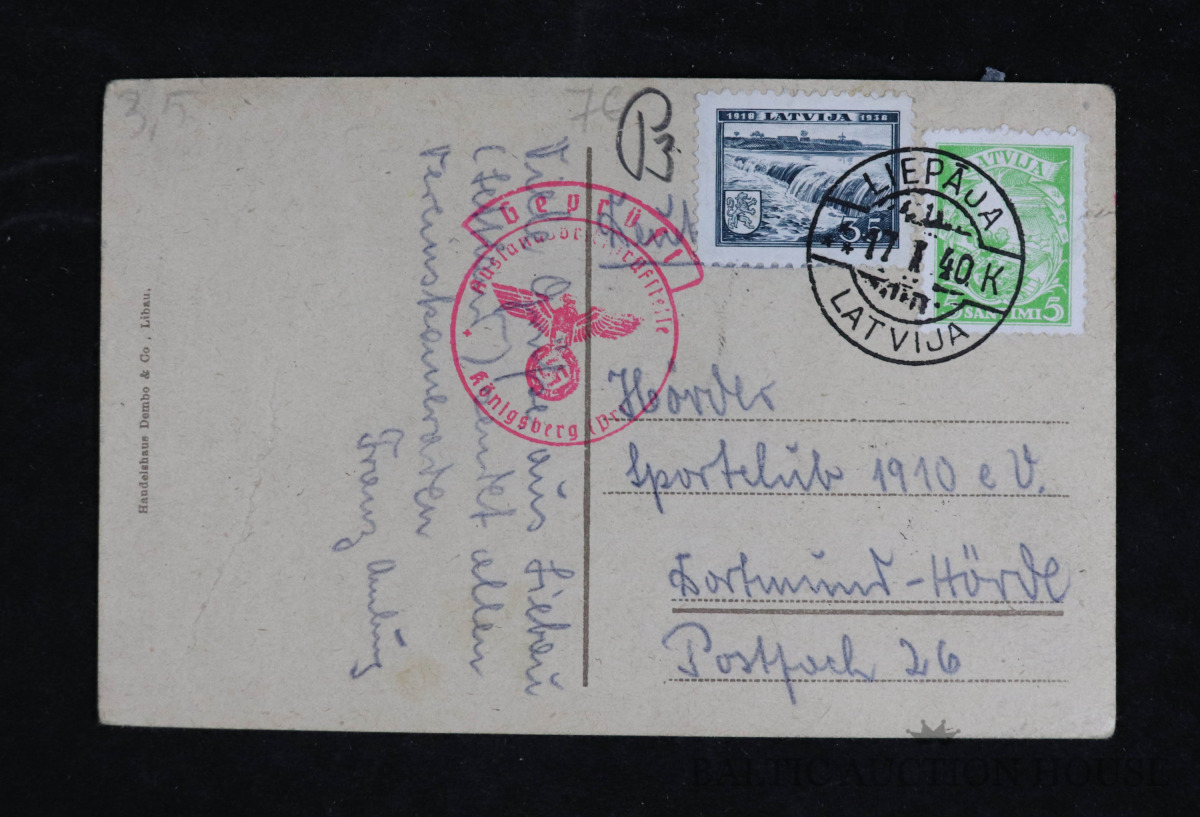 3,5
1918 LATVIJA 1938
35
LATVIJA
5 SANTIMI 5
LIEPĀJA
17 I 40 K
LATVIJA
Geprüft
Auslandsbriefprüfstelle
Königsberg (Pr
Viele Grüße aus Liebau
(Lettland) sendet allen
Vereinskameraden
Franz
Hörder
Sportclub 1910 e V.
Dortmund-Hörde
Postfach 26
Handelshaus Dembo & Co, Libau.
BALTIC AUCTION HOUSE